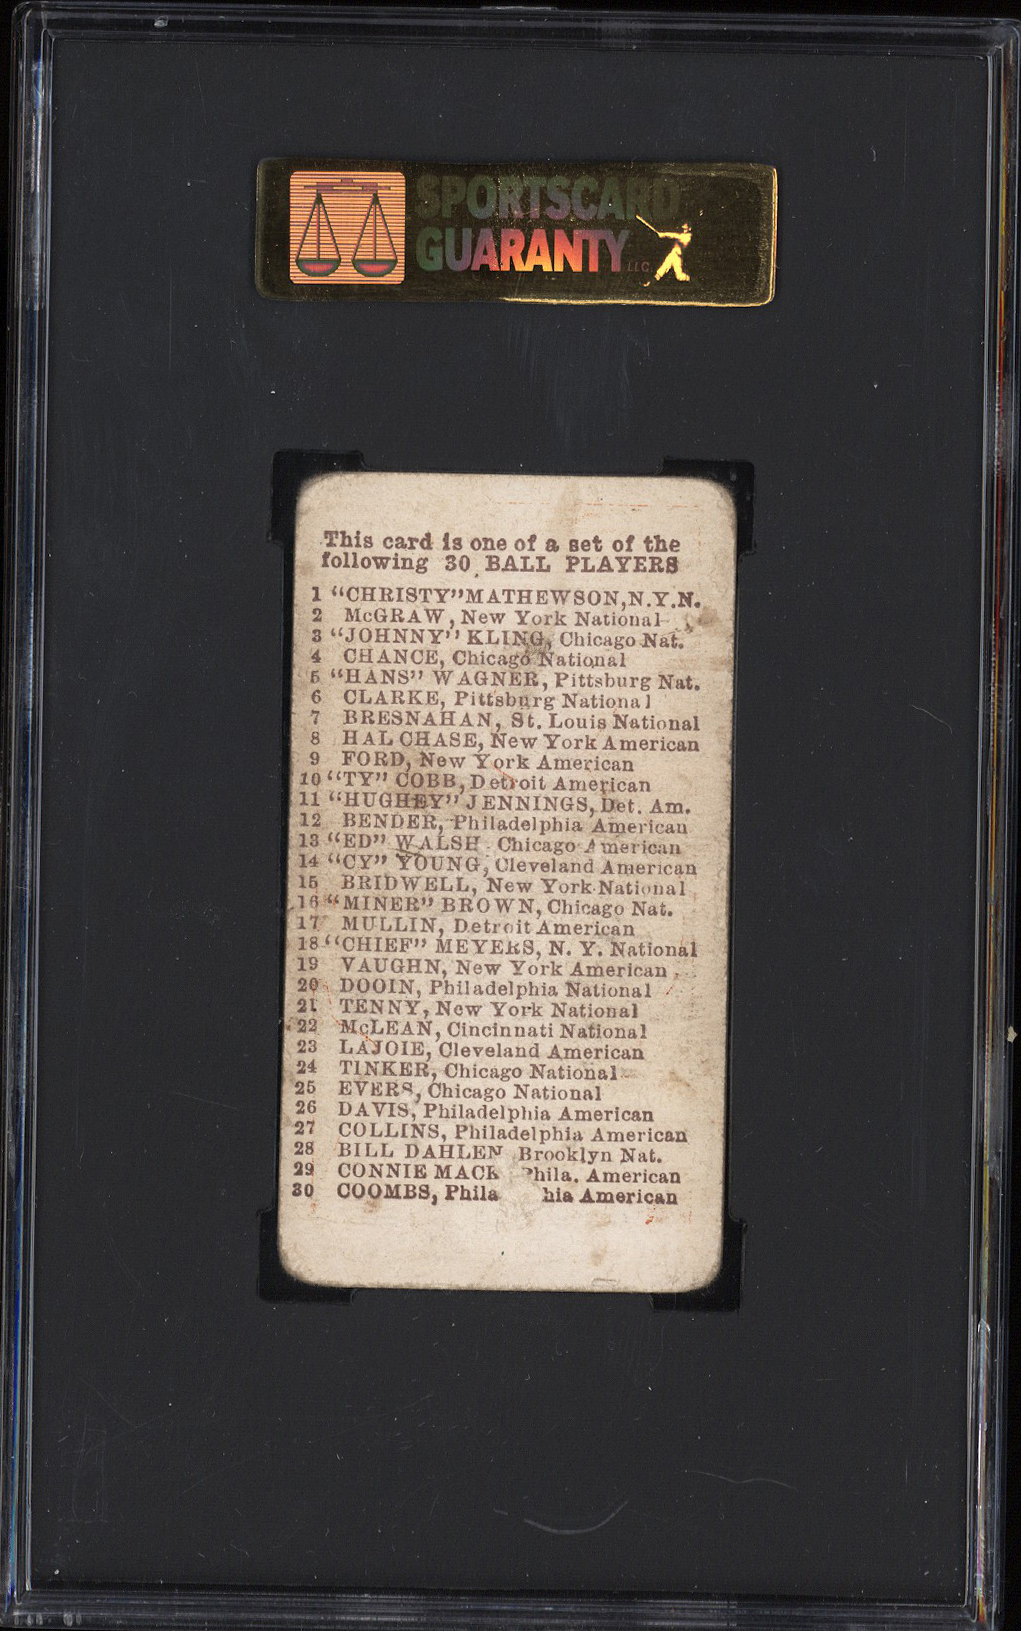 SPORTSCARD
GUARANTY LLC
This card is one of a set of the
following 30 BALL PLAYERS
1 "CHRISTY" MATHEWSON, N.Y.N.
2 McGRAW, New York National
3 "JOHNNY" KLING, Chicago Nat.
4 CHANCE, Chicago National
5 "HANS" WAGNER, Pittsburg Nat.
6 CLARKE, Pittsburg National
7 BRESNAHAN, St. Louis National
8 HAL CHASE, New York American
9 FORD, New York American
10 "TY" COBB, Detroit American
11 "HUGHEY" JENNINGS, Det. Am.
12 BENDER, Philadelphia American
13 "ED" WALSH Chicago American
14 "CY" YOUNG, Cleveland American
15 BRIDWELL, New York National
16 "MINER" BROWN, Chicago Nat.
17 MULLIN, Detroit American
18 "CHIEF" MEYERS, N. Y. National
19 VAUGHN, New York American
20 DOOIN, Philadelphia National
21 TENNY, New York National
22 McLEAN, Cincinnati National
23 LAJOIE, Cleveland American
24 TINKER, Chicago National
25 EVERS, Chicago National
26 DAVIS, Philadelphia American
27 COLLINS, Philadelphia American
28 BILL DAHLEN Brooklyn Nat.
29 CONNIE MACK Phila. American
30 COOMBS, Phila hia American